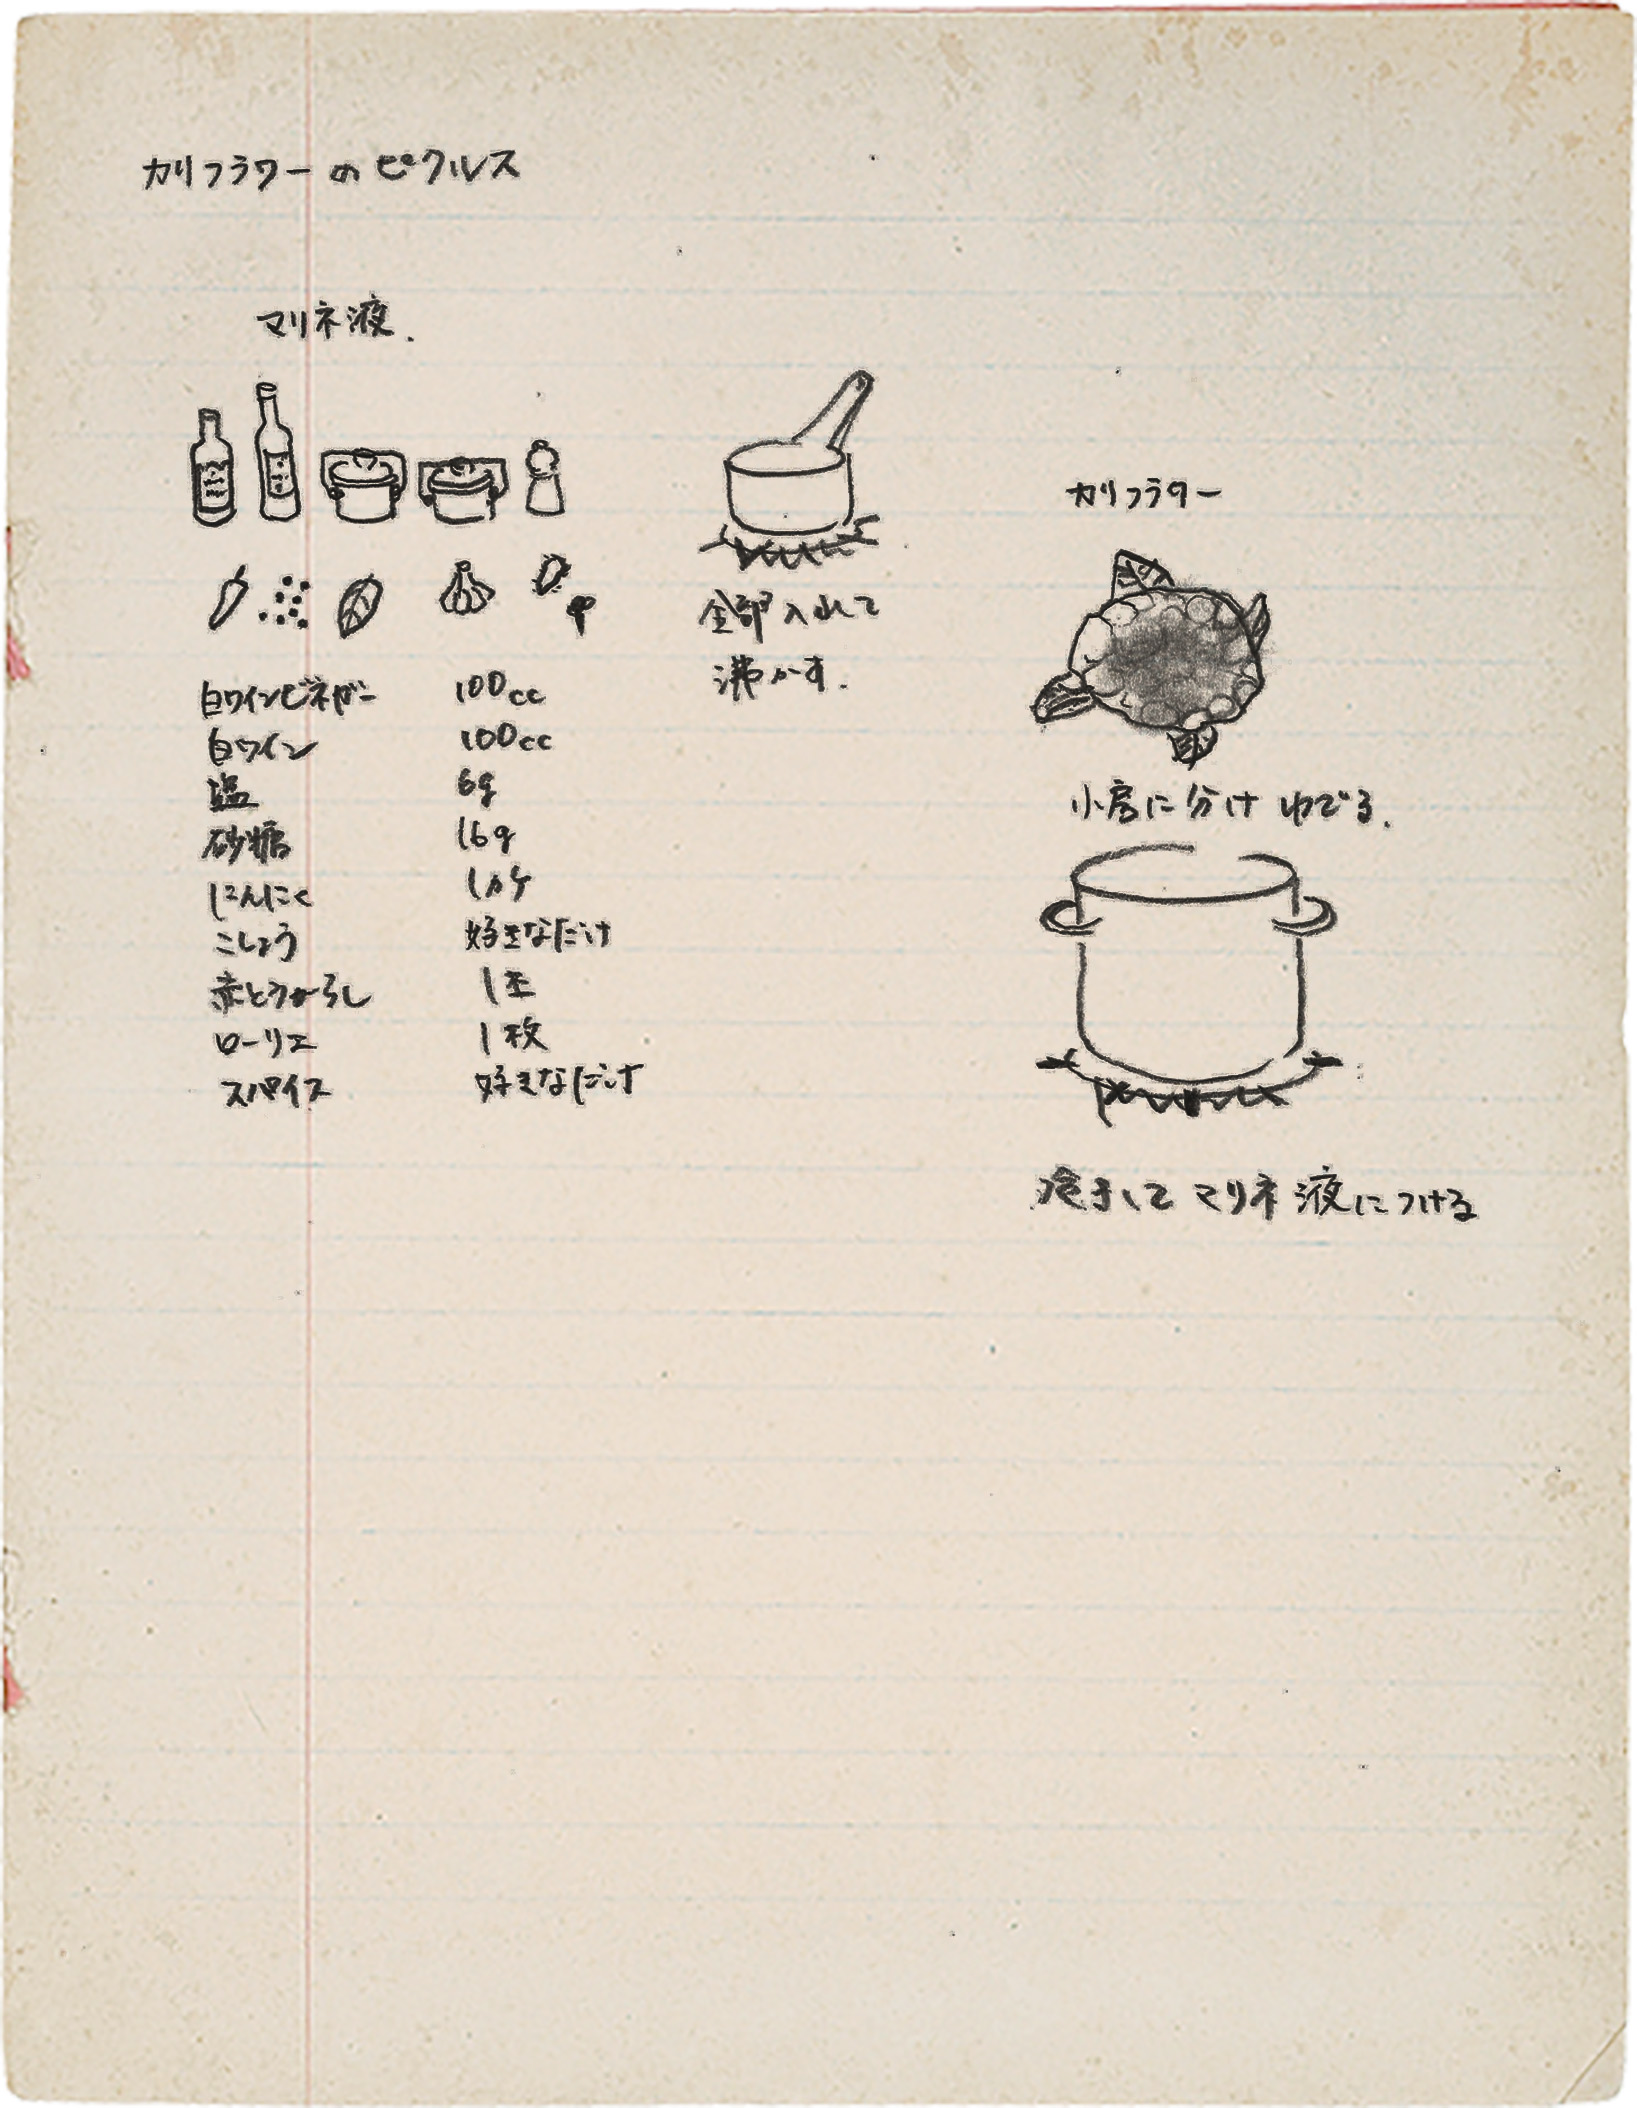 カリフラワーのピクルス
マリネ液.
白ワインビネガー 100cc
白ワイン 100cc
塩 6g
砂糖 16g
にんにく 1カケ
こしょう 好きなだけ
赤とうがらし 1本
ローリエ 1枚
スパイス 好きなだけ
全部入れて
沸かす.
カリフラワー
小房に分けゆでる.
冷まして マリネ液につける